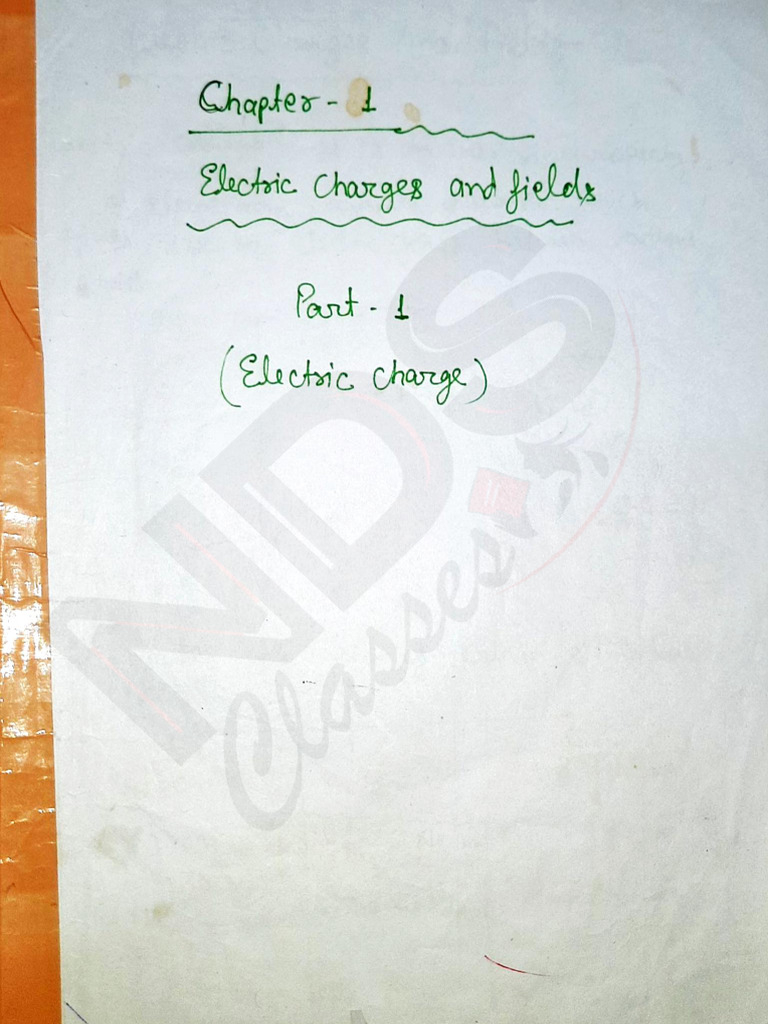 Chapter - 1
Electric Charges and fields
Part - 1
(Electric charge)
NDS
Classes